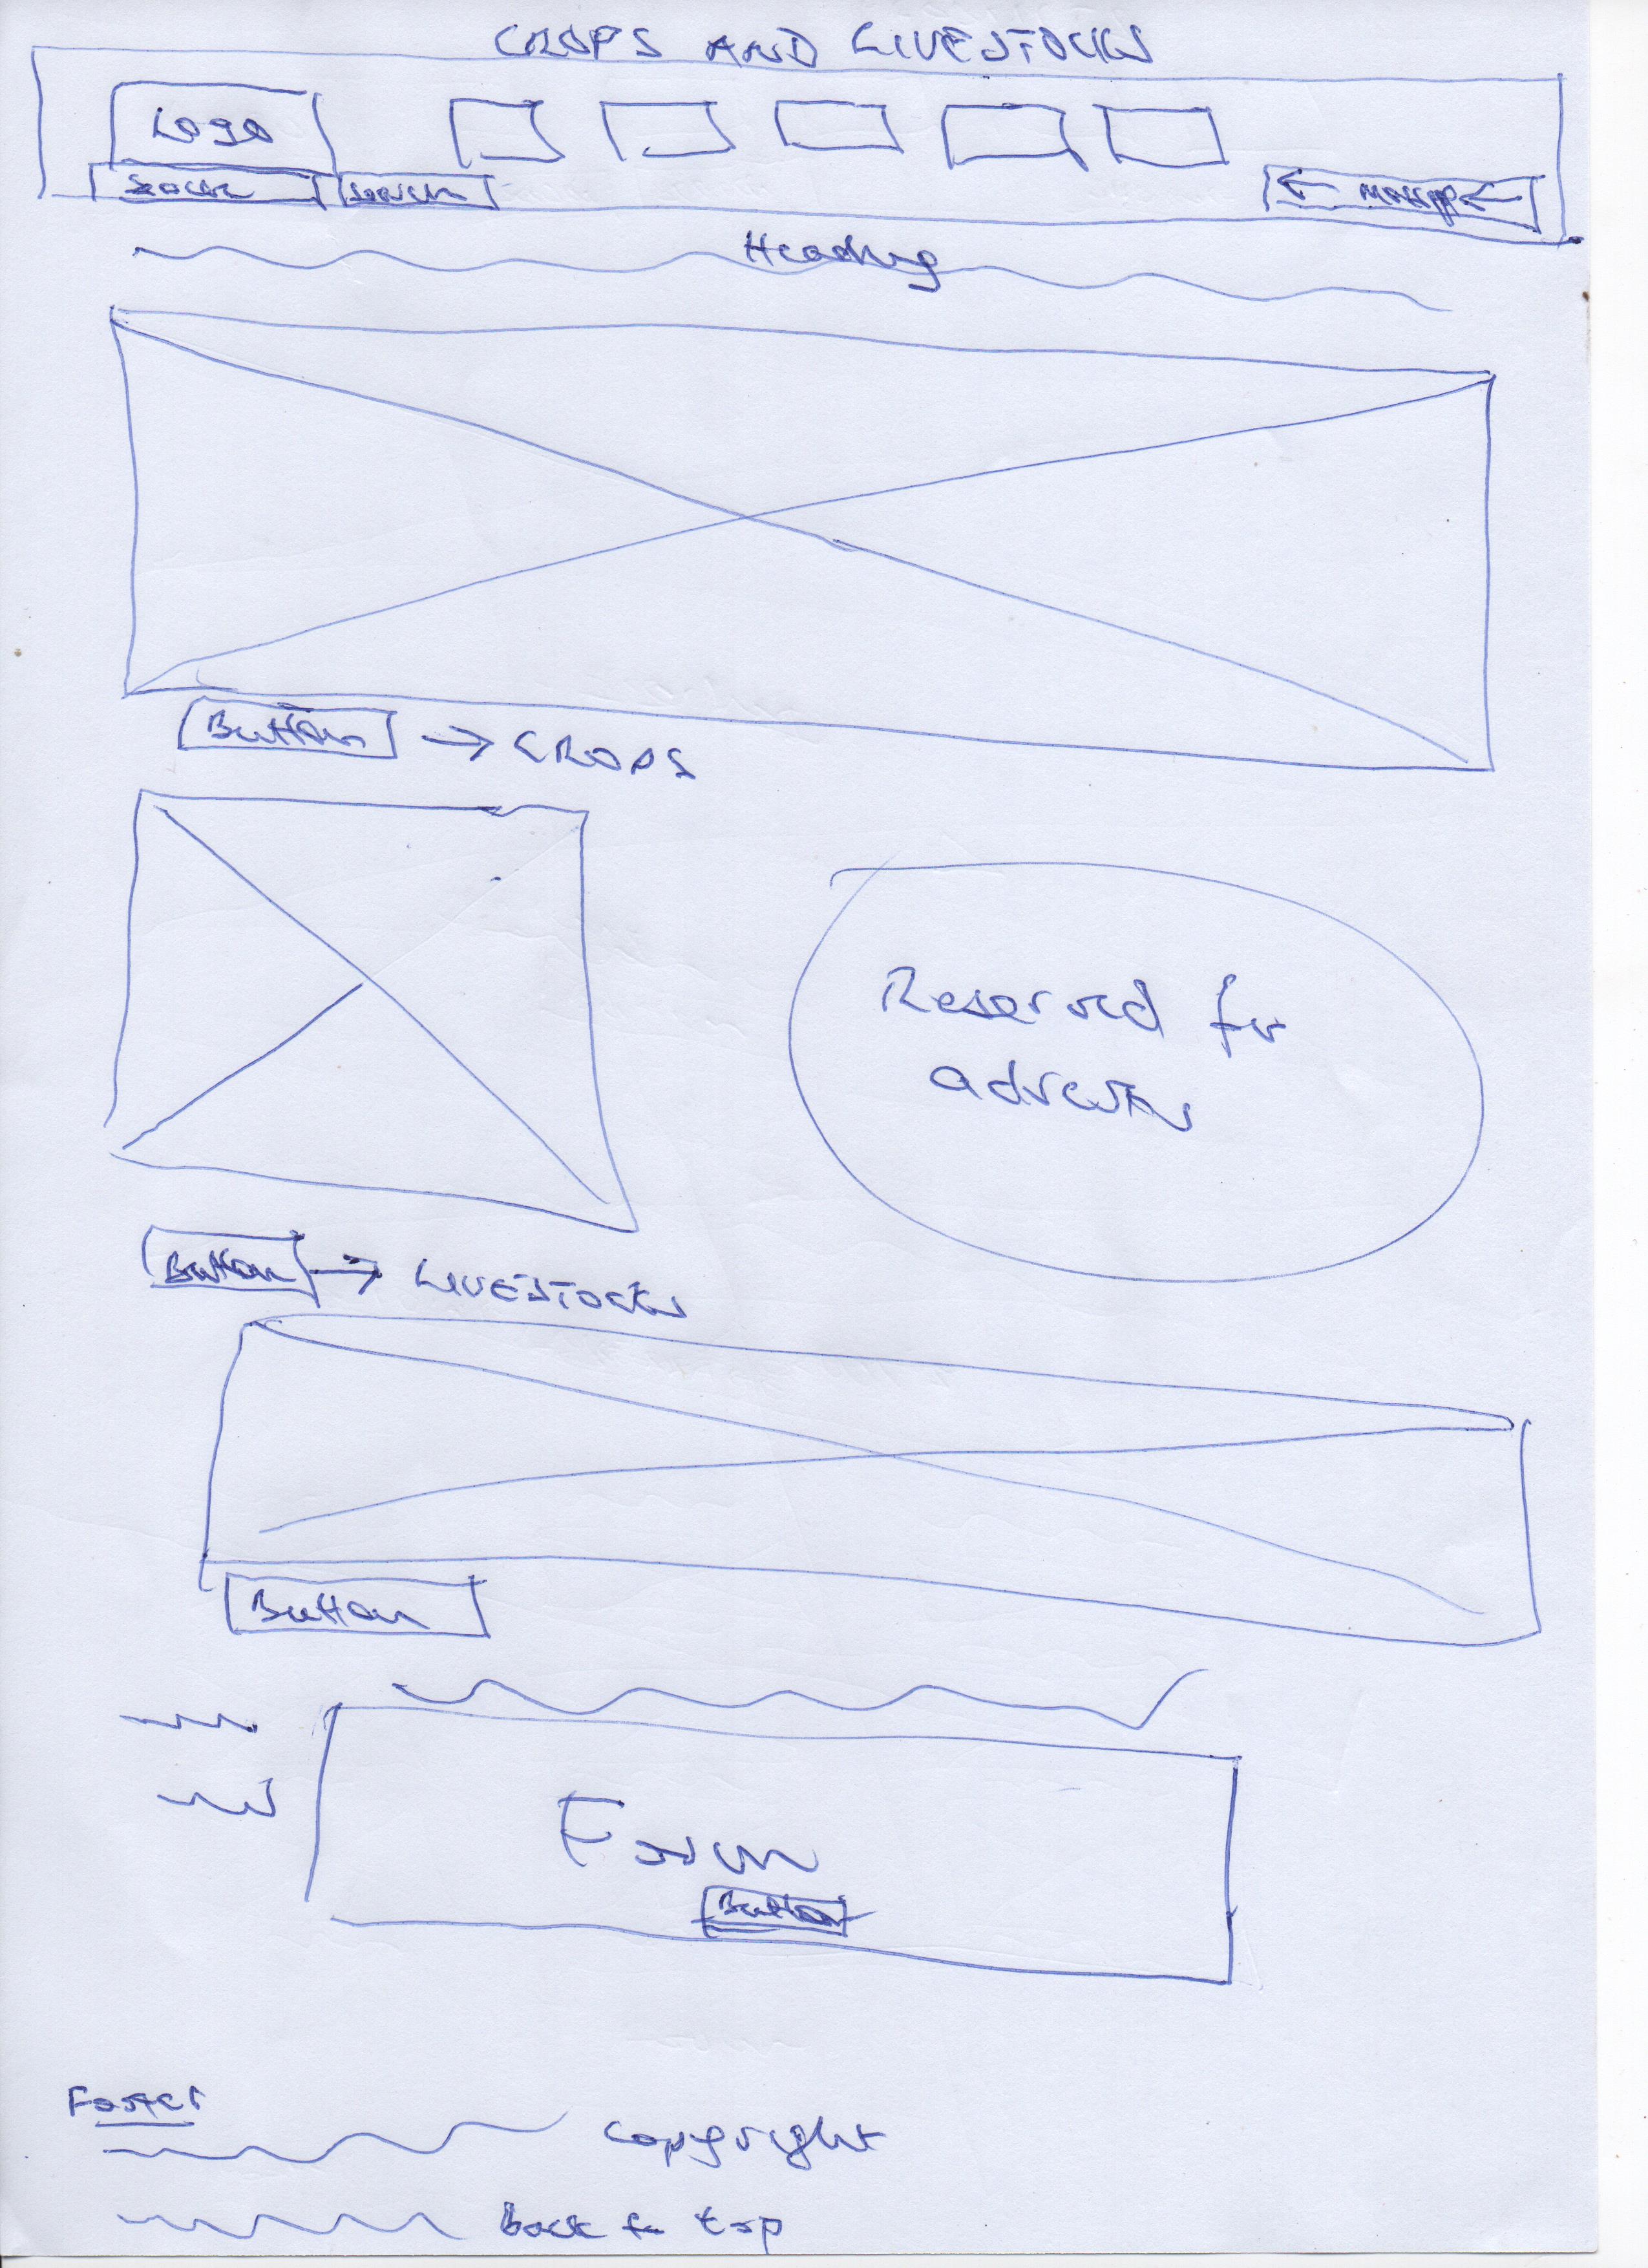 CROPS AND LIVESTOCKS
Logo
Search
Heading
Button → CROPS
Reserved for
adverts
Button → LIVESTOCKS
Button
Form
Button
Footer
Copyright
Back to top